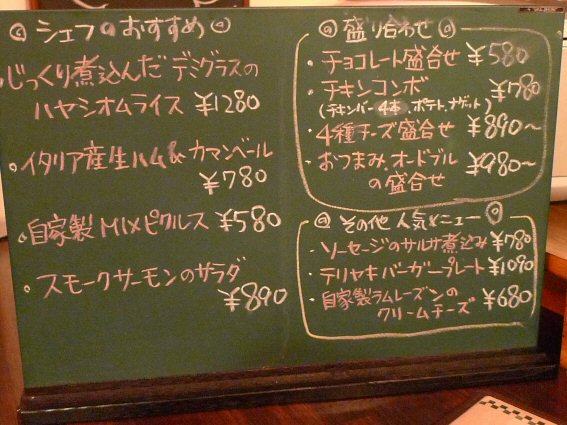 ◎ シェフのおすすめ ◎
・じっくり煮込んだ デミグラスの
ハヤシオムライス ¥1280
・イタリア産生ハム& カマンベール
¥780
・自家製MIXピクルス ¥580
・スモークサーモンのサラダ
¥890
◎ 盛り合わせ ◎
・チョコレート盛合せ ¥580
・チキンコンボ ¥1780
(チキンバー4本、ポテト、ナゲット)
・4種チーズ盛合せ ¥890〜
・おつまみ オードブル ¥980〜
の盛合せ
◎ その他 人気メニュー ◎
・ソーセージのサルサ煮込み ¥780
・テリヤキバーガープレート ¥1090
・自家製ラムレーズンの ¥680
クリームチーズ